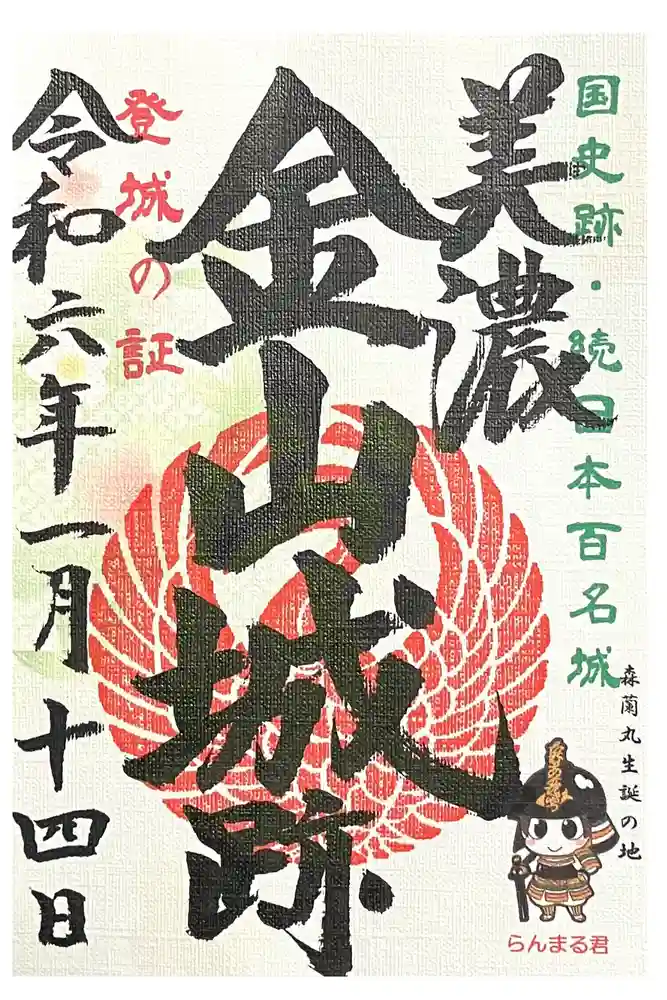 国史跡・続日本百名城
美濃
金山城跡
登城の証
令和六年一月十四日
森蘭丸生誕の地
らんまる君